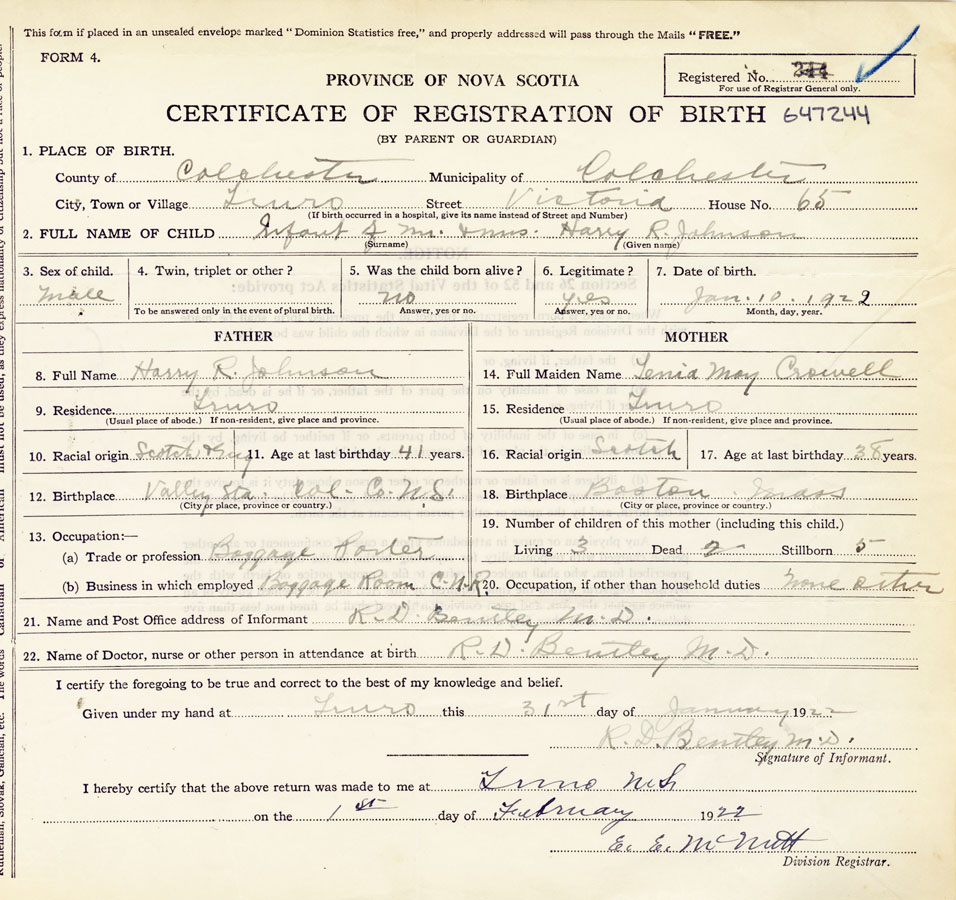 This form if placed in an unsealed envelope marked "Dominion Statistics free," and properly addressed will pass through the Mails "FREE."
FORM 4.
Registered No. 244
For use of Registrar General only.
PROVINCE OF NOVA SCOTIA
CERTIFICATE OF REGISTRATION OF BIRTH 647244
(BY PARENT OR GUARDIAN)
1. PLACE OF BIRTH.
County of Colchester Municipality of Colchester
City, Town or Village Truro Street Victoria House No. 65
(If birth occurred in a hospital, give its name instead of Street and Number)
2. FULL NAME OF CHILD Infant of Mr. & Mrs. Harry R. Johnson
(Surname) (Given name)
3. Sex of child. 4. Twin, triplet or other? 5. Was the child born alive? 6. Legitimate? 7. Date of birth.
Male no yes Jan. 10. 1922
To be answered only in the event of plural birth. Answer, yes or no. Answer, yes or no. Month, day, year.
FATHER
8. Full Name Harry R. Johnson
9. Residence Truro
(Usual place of abode.) If non-resident, give place and province.
10. Racial origin Scotch & Eng 11. Age at last birthday 41 years.
12. Birthplace Valley Sta. Col- Co. N.S.
(City or place, province or country.)
13. Occupation:—
(a) Trade or profession Baggage Porter
(b) Business in which employed Baggage Room C.N.R.
MOTHER
14. Full Maiden Name Lenid May Crowell
15. Residence Truro
(Usual place of abode.) If non-resident, give place and province.
16. Racial origin Scotch 17. Age at last birthday 38 years.
18. Birthplace Boston Mass
(City or place, province or country.)
19. Number of children of this mother (including this child.)
Living 3 Dead 2 Stillborn 5
20. Occupation, if other than household duties None other
21. Name and Post Office address of Informant R. D. Bentley M.D.
22. Name of Doctor, nurse or other person in attendance at birth R. D. Bentley M.D.
I certify the foregoing to be true and correct to the best of my knowledge and belief.
Given under my hand at Truro this 31st day of January 1922
R. D. Bentley M.D.
Signature of Informant.
I hereby certify that the above return was made to me at Truro N.S
on the 1st day of February 1922
E. E. McNutt
Division Registrar.